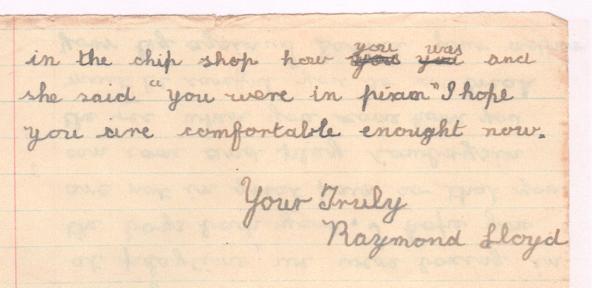 in the chip shop how you was and
she said "you were in " I hope
you are comfortable enought now.
Your Truly
Raymond Lloyd